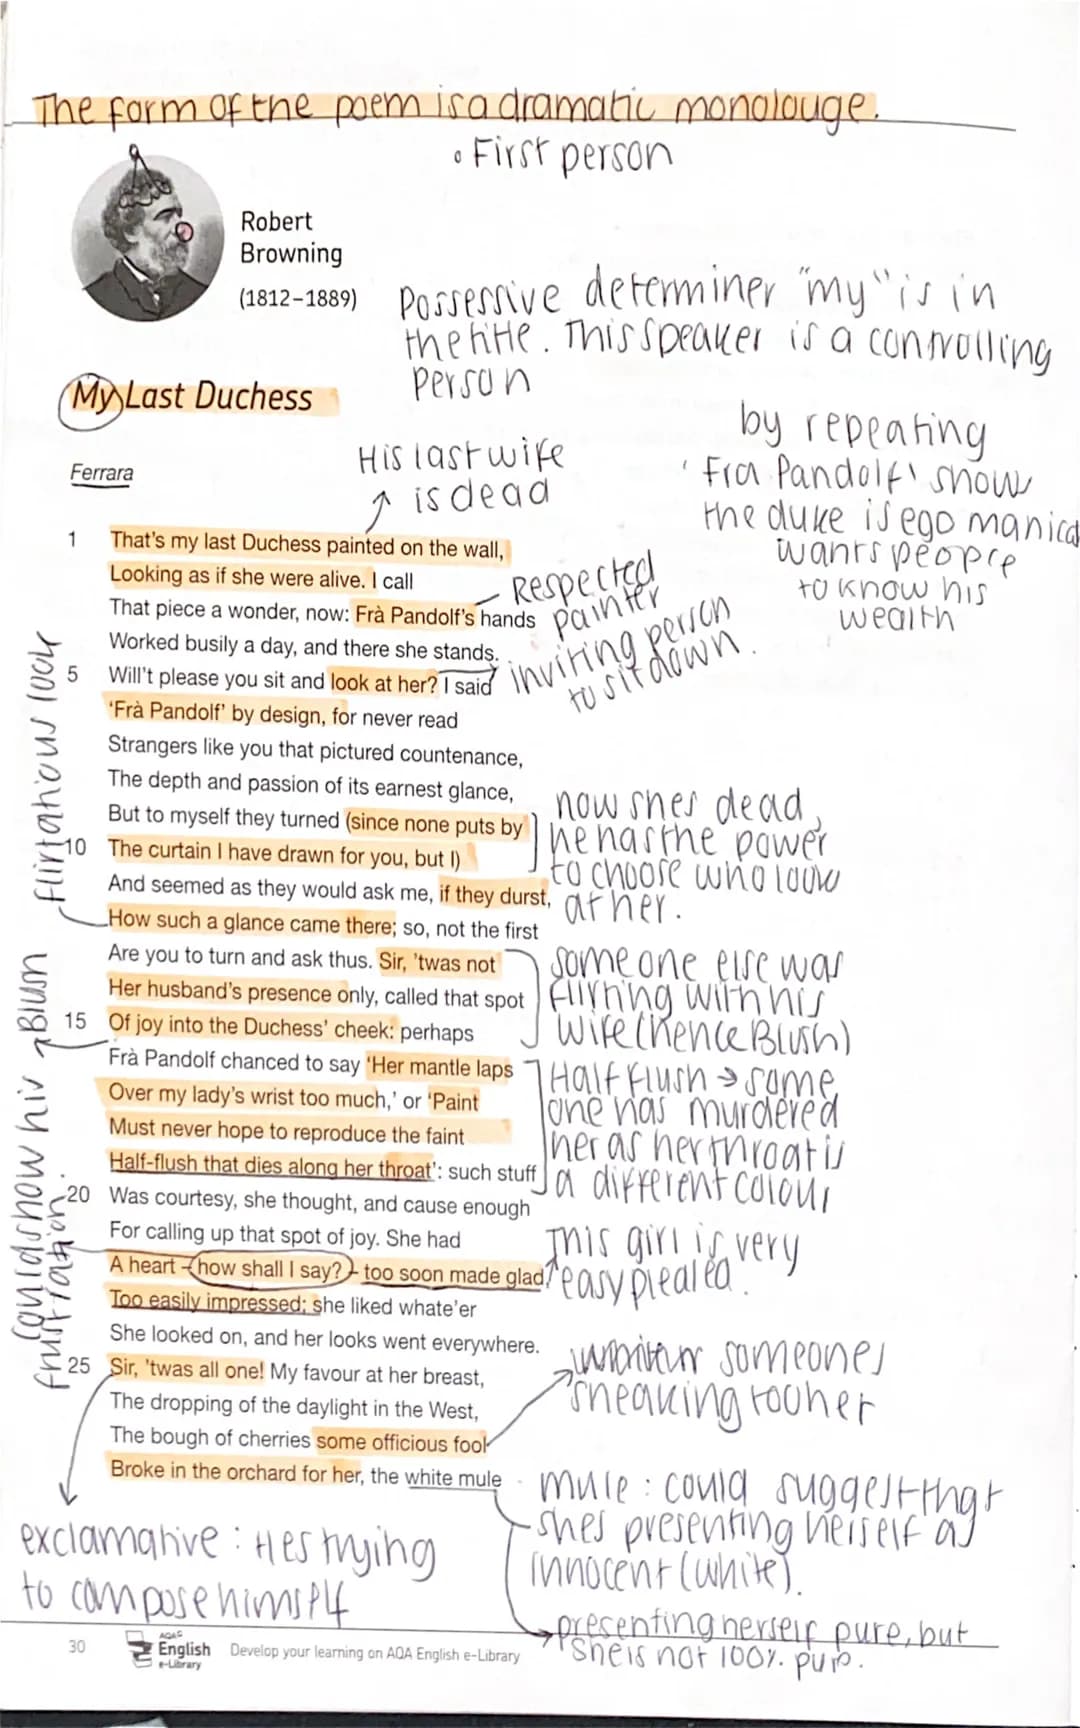 The form of the poem is a dramatic monolouge.
• First person
Robert
Browning
(1812–1889)
Possessive determiner "my" is in
the title. This speaker is a controlling
person
My Last Duchess
Ferrara
His last wife
is dead
by repeating
'Fra Pandolf' show
the duke is ego manical
wants people
to know his
wealth
1 That's my last Duchess painted on the wall,
Looking as if she were alive. I call
That piece a wonder, now: Frà Pandolf's hands
Worked busily a day, and there she stands.
5 Will't please you sit and look at her? I said
'Frà Pandolf' by design, for never read
Strangers like you that pictured countenance,
The depth and passion of its earnest glance,
But to myself they turned (since none puts by
10 The curtain I have drawn for you, but I)
And seemed as they would ask me, if they durst,
How such a glance came there; so, not the first
Are you to turn and ask thus. Sir, 'twas not
Her husband's presence only, called that spot
15 Of joy into the Duchess' cheek: perhaps
Frà Pandolf chanced to say 'Her mantle laps
Over my lady's wrist too much,' or 'Paint
Must never hope to reproduce the faint
Half-flush that dies along her throat': such stuff
20 Was courtesy, she thought, and cause enough
For calling up that spot of joy. She had
A heart – how shall I say? – too soon made glad,
Too easily impressed; she liked whate'er
She looked on, and her looks went everywhere.
25 Sir, 'twas all one! My favour at her breast,
The dropping of the daylight in the West,
The bough of cherries some officious fool
Broke in the orchard for her, the white mule
Respected
painter
inviting person
to sit down.
now shes dead,
he has the power
to choose who look
at her.
someone else was
flirting with his
wife (hence Blush)
Half flush → some
one has murdered
her as her throat is
a different colour
This girl is very
easy pleased.
someones
sneaking to her
mule : could suggest that
shes presenting herself as
innocent (white).
presenting herself pure, but
she is not 100% pure.
flirtatious look
Blush
Could show his
frustration.
exclamative : Hes trying
to compose himself
30
AQA
English
e-Library
Develop your learning on AQA English e-Library